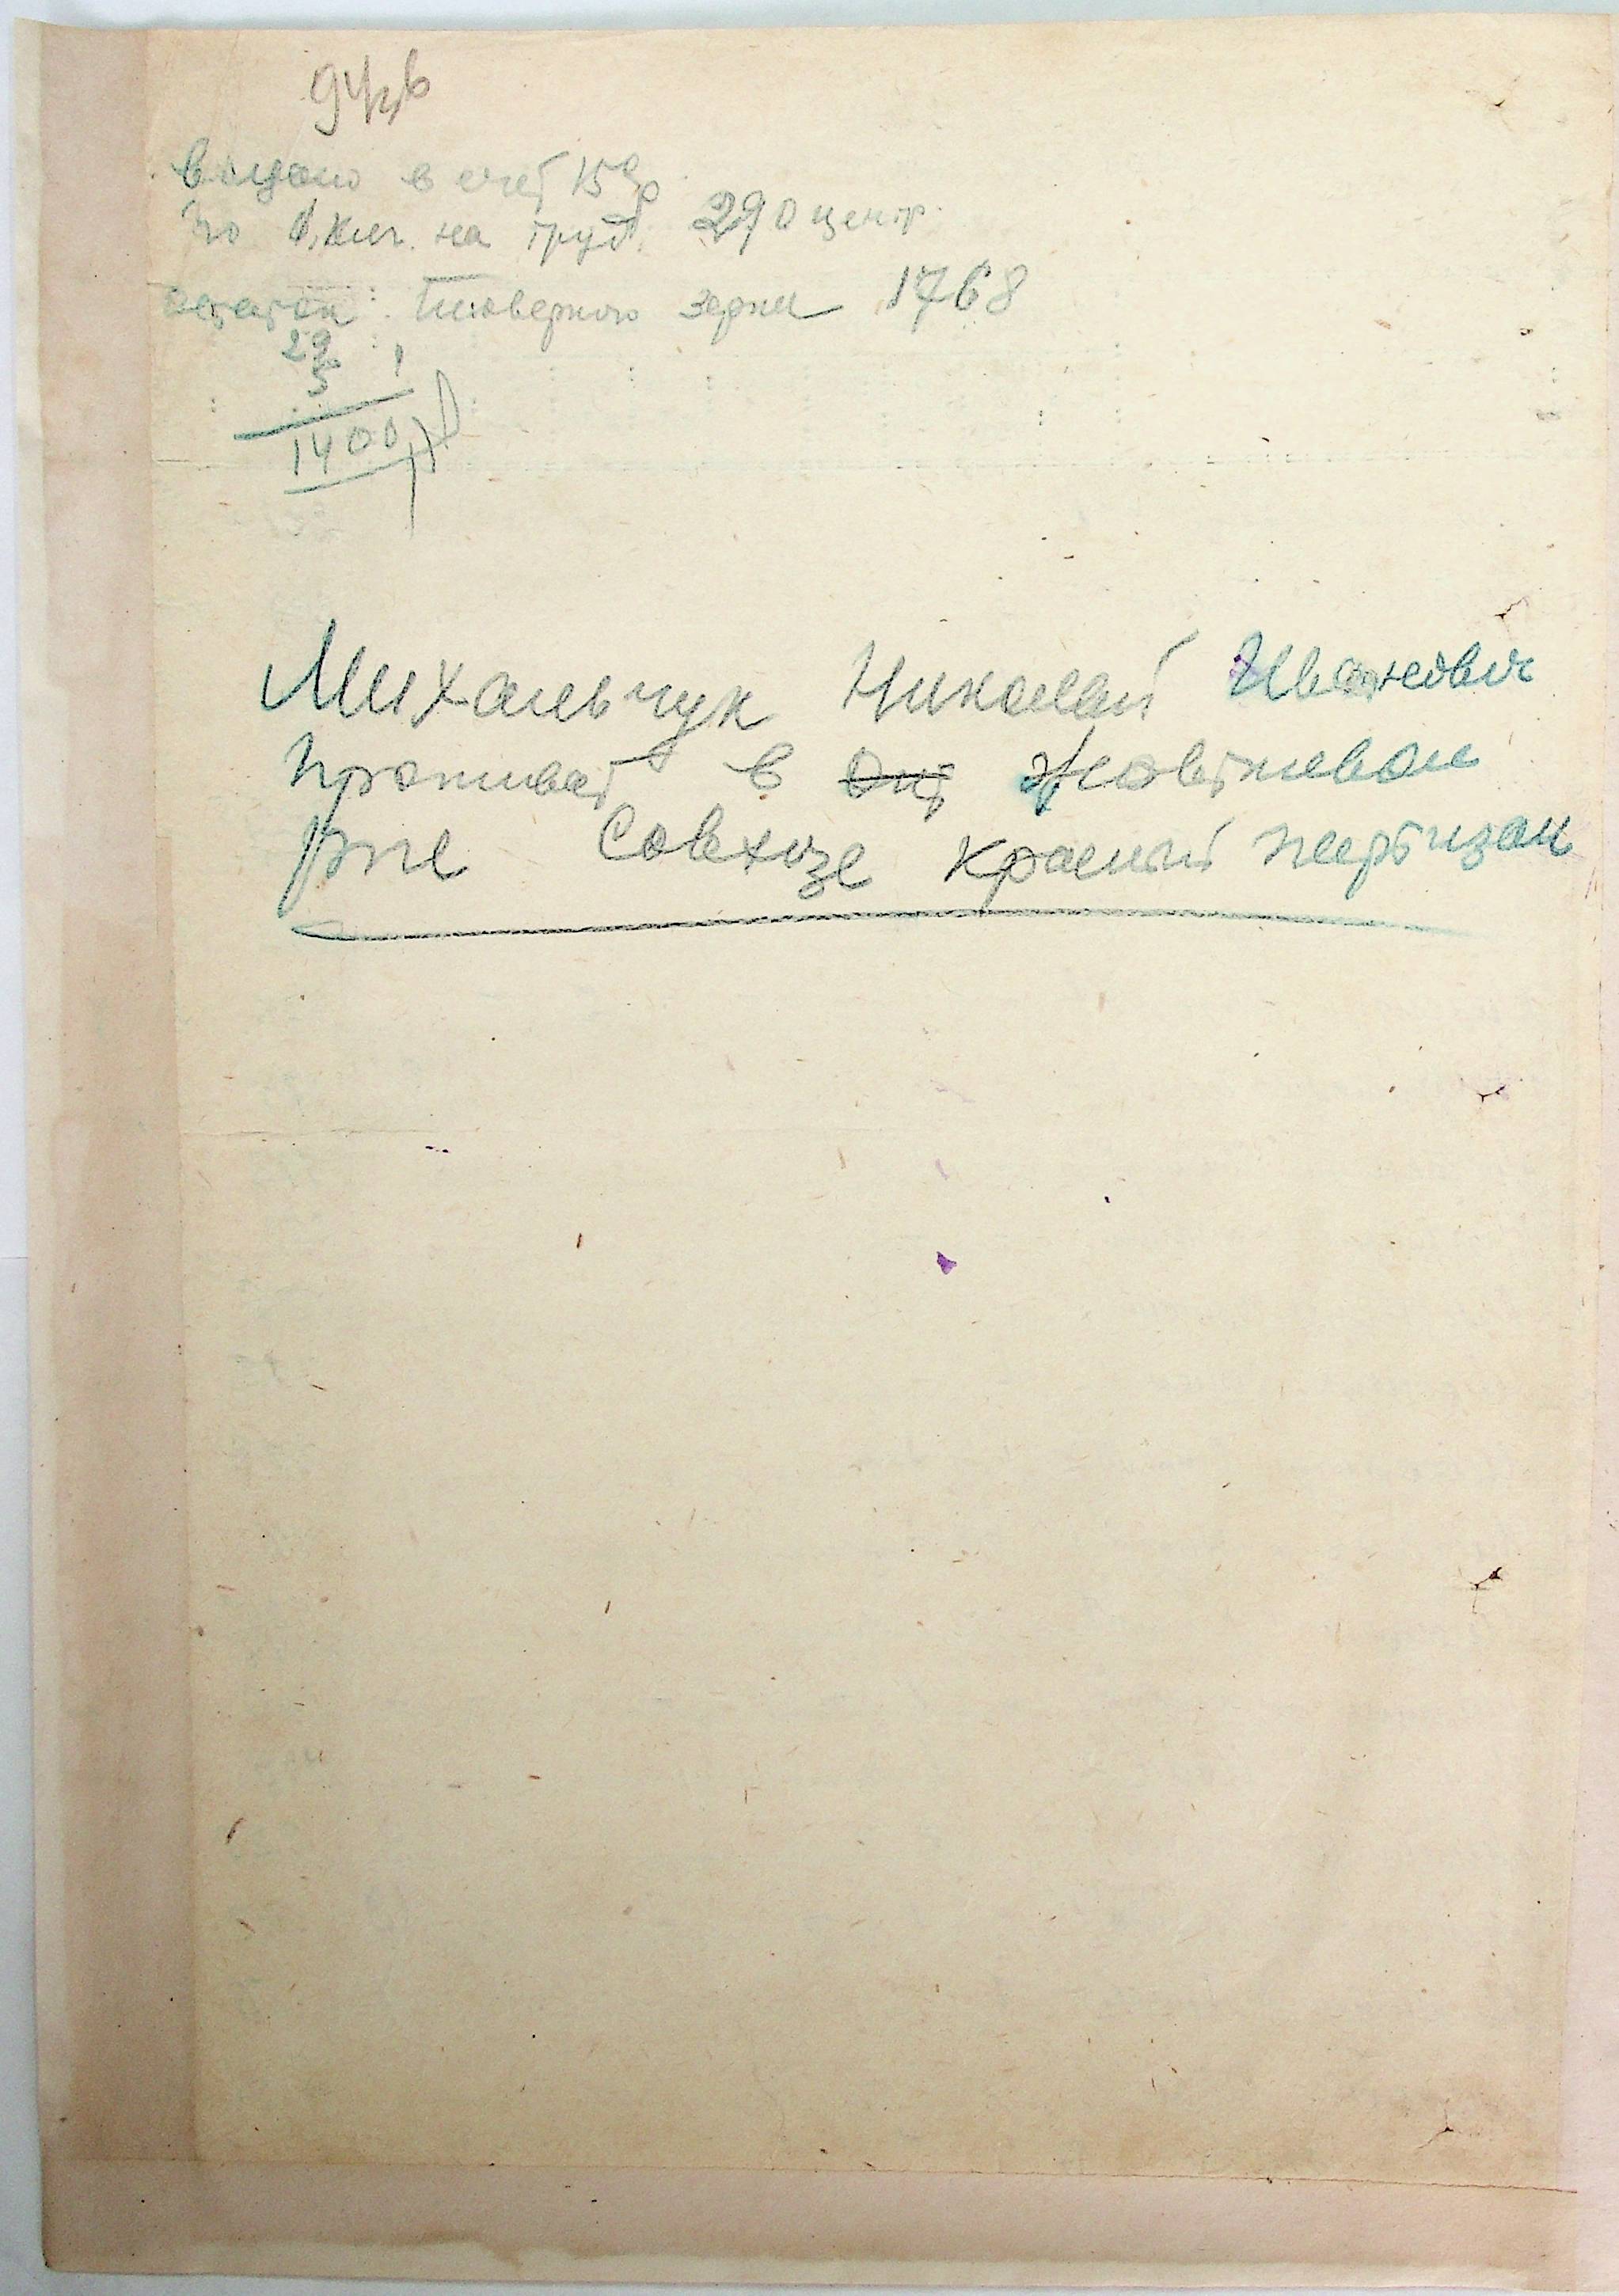 94
выдано в счет 15%
по 1 кил. на труд. 290 центр.
остаток зерна 1768
29
5 1
1400
Михальчук Николай Иванович
Проживает в Жовтневом
рне Совхозе Красный партизан